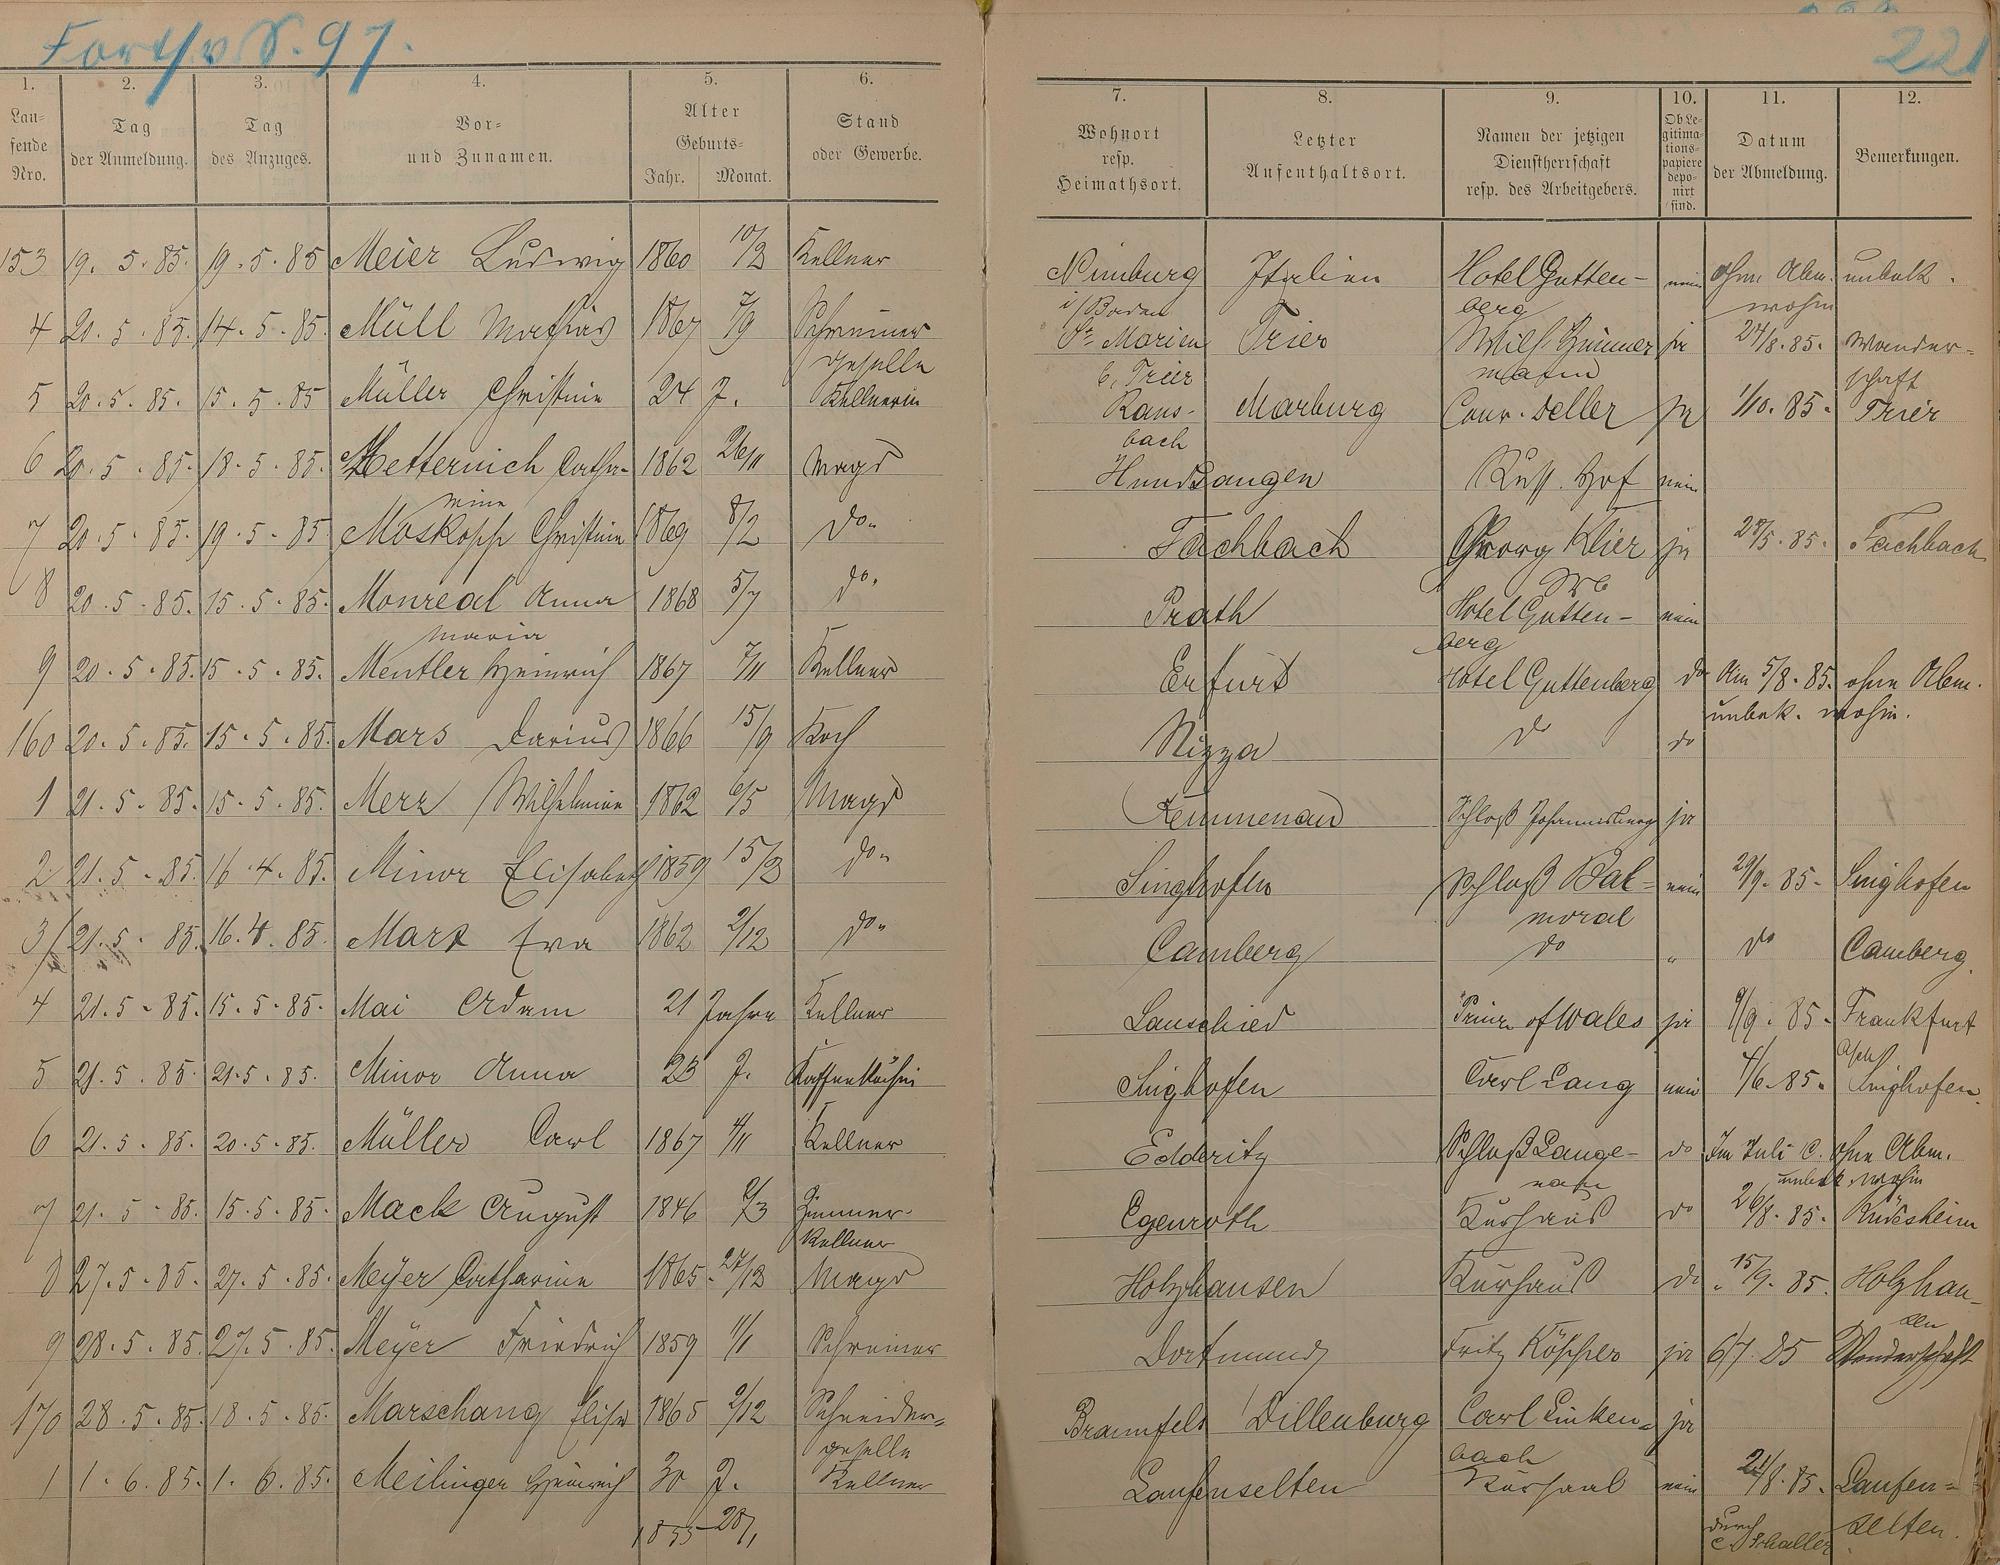 Forts. v. S. 97.
221
1. 2. 3. 4. 5. 6. 7. 8. 9. 10. 11. 12.
Lau-
fende
Nro.
Tag
der Anmeldung.
Tag
des Anzuges.
Vor-
und Zunamen.
Alter
Geburts-
Jahr. Monat.
Stand
oder Gewerbe.
Wohnort
resp.
Heimathsort.
Letzter
Aufenthaltsort.
Namen der jetzigen
Dienstherrschaft
resp. des Arbeitgebers.
Ob Le-
gitima-
tions-
papiere
depo-
nirt
sind.
Datum
der Abmeldung.
Bemerkungen.
153 19. 5. 85. 19. 5. 85 Meier Ludwig 1860 10/2 Kellner Nimburg Italien Hotel Gutten- nein ohne Abm. unbek.
i/Baden berg wohin
4 20. 5. 85. 14. 5. 85. Müll Mathias 1867 7/9 Schreiner St. Marien Trier Wilh. Zimmer ja 24/8. 85. Wander-
geselle b. Trier mann schaft
5 20. 5. 85. 15. 5. 85 Müller Christine 24 J. Kellnerin Rans- Marburg Conr. Deller ja 1/10. 85. Trier
bach
6 20. 5. 85. 18. 5. 85. Metternich Catha- 1862 26/11 Magd Hundsangen Russ. Hof nein
rina
7 20. 5. 85. 19. 5. 85 Moskopp Christine 1869 8/2 do. Fachbach Georg Klier ja 28/5. 85. Fachbach
Ww
8 20. 5. 85. 15. 5. 85. Monreal Anna 1868 5/7 do. Prath Hotel Gutten- nein
Maria berg
9 20. 5. 85. 15. 5. 85. Mentler Heinrich 1867 7/11 Kellner Erfurt Hotel Guttenberg do Am 5/8. 85. ohne Abm.
unbek. wohin.
160 20. 5. 85. 15. 5. 85. Mars Darius 1866 15/9 Koch Nizza do do
1 21. 5. 85. 15. 5. 85. Merz Wilhelmine 1862 6/5 Magd Kemmenau Schloß Johannisburg ja
2 21. 5. 85. 16. 4. 85. Minor Elisabeth 1859 15/2 do. Singhofen Schloß Bal- nein 29/9. 85. Singhofen
moral
3 21. 5. 85. 16. 4. 85. Marx Eva 1862 2/12 do. Camberg do " do Camberg.
4 21. 5. 85. 15. 5. 85. Mai Adam 21 Jahre Kellner Lauschied Prinz of Wales ja 9/9. 85. Frankfurt
5 21. 5. 85. 21. 5. 85. Minor Anna 23 J. Kaffeeköchin Singhofen Carl Lang nein 4/6. 85. Singhofen.
6 21. 5. 85. 20. 5. 85. Müller Carl 1867 4/11 Kellner Edderitz Schloß Lange- do Im Juli c. ohne Abm.
nau unbek. wohin
7 21. 5. 85. 15. 5. 85. Mack August 1846 2/3 Zimmer- Egenroth Kurhaus do 26/8. 85. Rüdesheim
Kellner
8 27. 5. 85. 27. 5. 85. Meyer Catharine 1865. 27/12 Magd Holzhausen Kurhaus do 15/9. 85. Holzhau-
sen
9 28. 5. 85. 27. 5. 85. Meyer Friedrich 1859 1/1 Schreiner Dortmund Fritz Köpper ja 6/7 85 Wanderschaft
170 28. 5. 85. 18. 5. 85. Marschang Elise 1865 2/12 Schneider- Braunfels Dillenburg Carl Linken- ja
geselle bach
1 1. 6. 85. 1. 6. 85. Meilinger Heinrich 30 J. Kellner Laufenselten Kursaal nein 21/8. 85. Laufen-
1855 20/1 durch selten.
C. Schaller